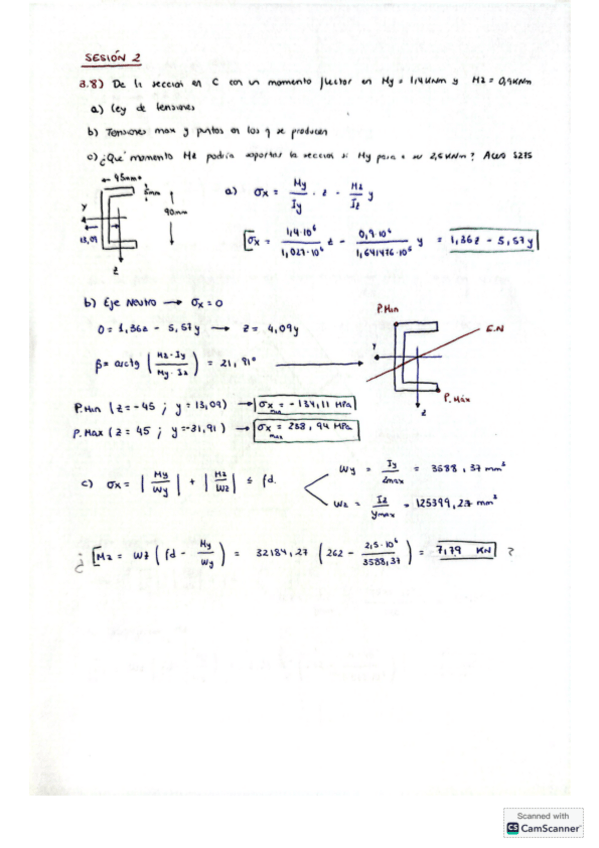 SESIÓN 2
3.8) De la sección en C con un momento flector en My = 1,4 kNm y Mz = 0,9 kNm
a) Ley de tensiones
b) Tensiones max y puntos en los q se producen
c) ¿Qué momento Mz podría soportar la sección si My para a su 2,5 kNm? Acero S275
45mm
5mm
90mm
y
13,09
z
a) σx = My/Iy · z - Mz/Iz y
[σx = 1,4·10⁶/1,027·10⁶ z - 0,9·10⁶/1,641476·10⁵ y = 1,36z - 5,57y
b) Eje Neutro → σx = 0
0 = 1,36z - 5,57y → z = 4,09y
β = arctg (Mz·Iy/My·Iz) = 21,91°
P.Min
E.N
y
z
P.Máx
P.Min (z = -45 ; y = 13,09) → σx min = -134,11 MPa
P.Max (z = 45 ; y = -31,91) → σx max = 238,94 MPa
c) σx = |My/Wy| + |Mz/Wz| ≤ fd.
Wy = Iy/zmax = 3588,37 mm³
Wz = Iz/ymax = 125399,27 mm³
¿ [Mz = Wz (fd - My/Wy) = 32184,27 (262 - 2,5·10⁶/3588,37) = 7,79 KN ?
Scanned with
CS CamScanner